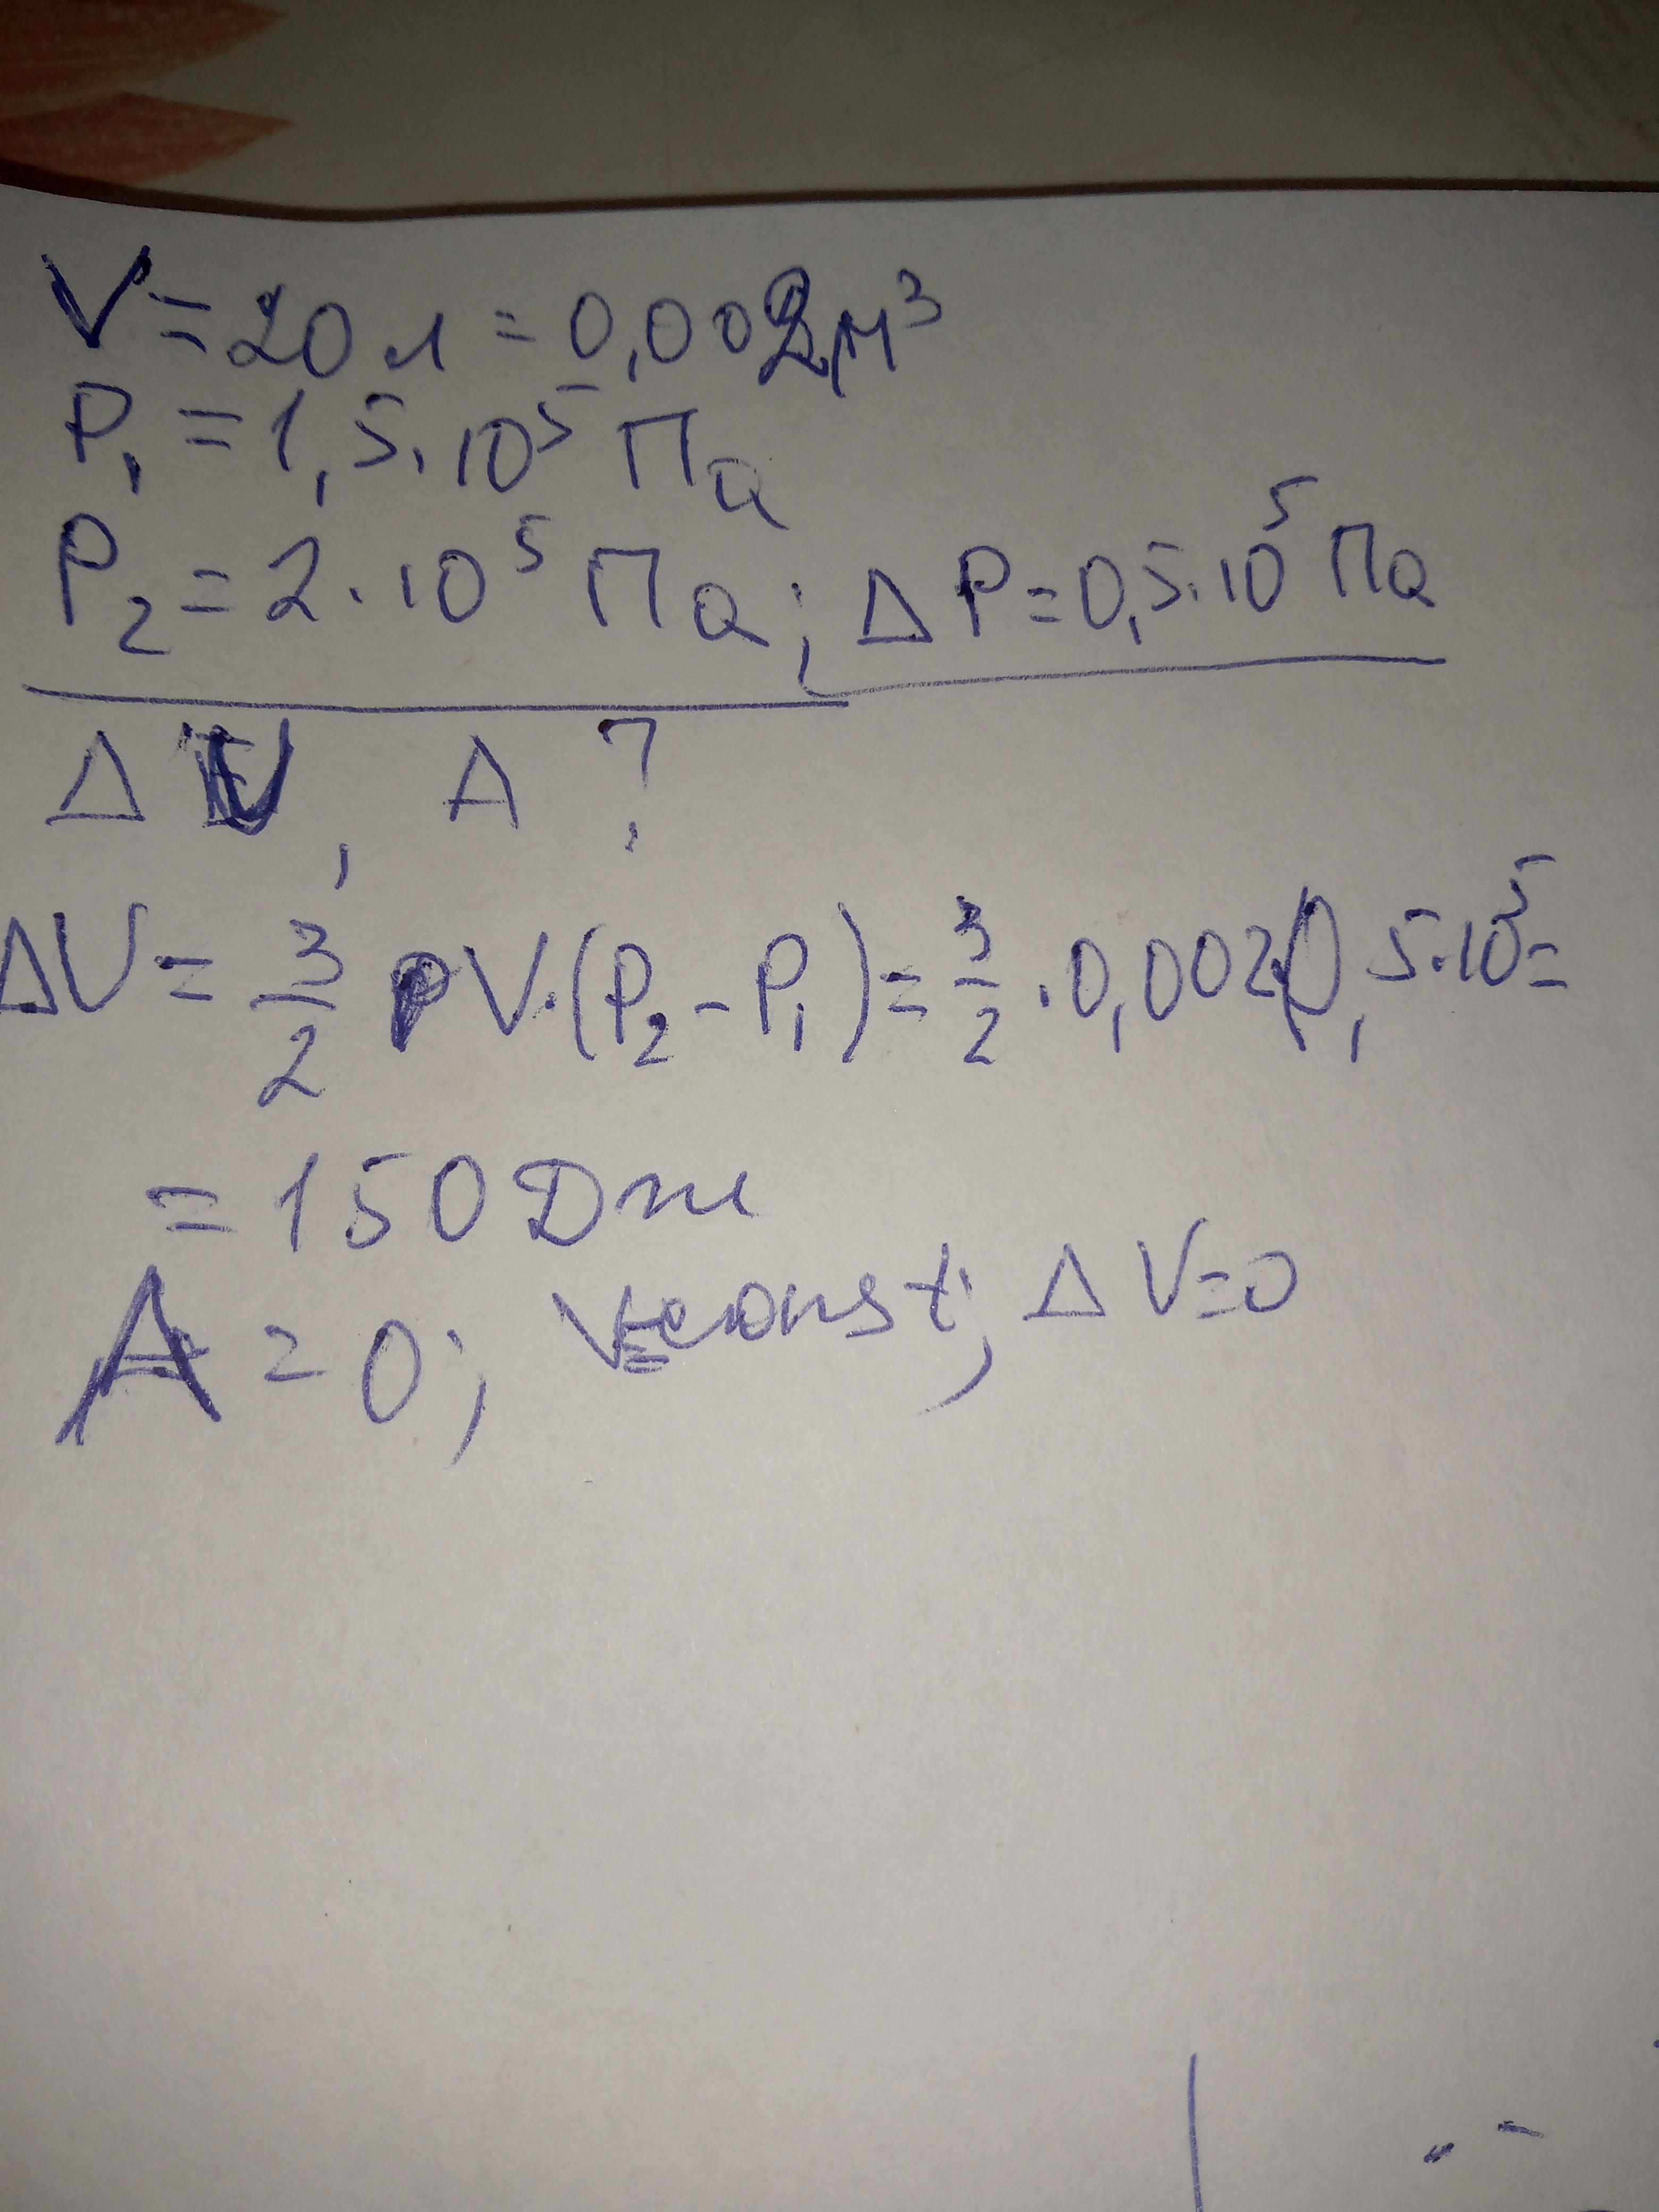 V = 20 л = 0,002 м³
P₁ = 1,5·10⁵ Па
P₂ = 2·10⁵ Па; ΔP = 0,5·10⁵ Па
ΔU, A ?
ΔU = 3/2 V·(P₂ - P₁) = 3/2 · 0,002·0,5·10⁵ =
= 150 Дж
A = 0; V = const; ΔV = 0